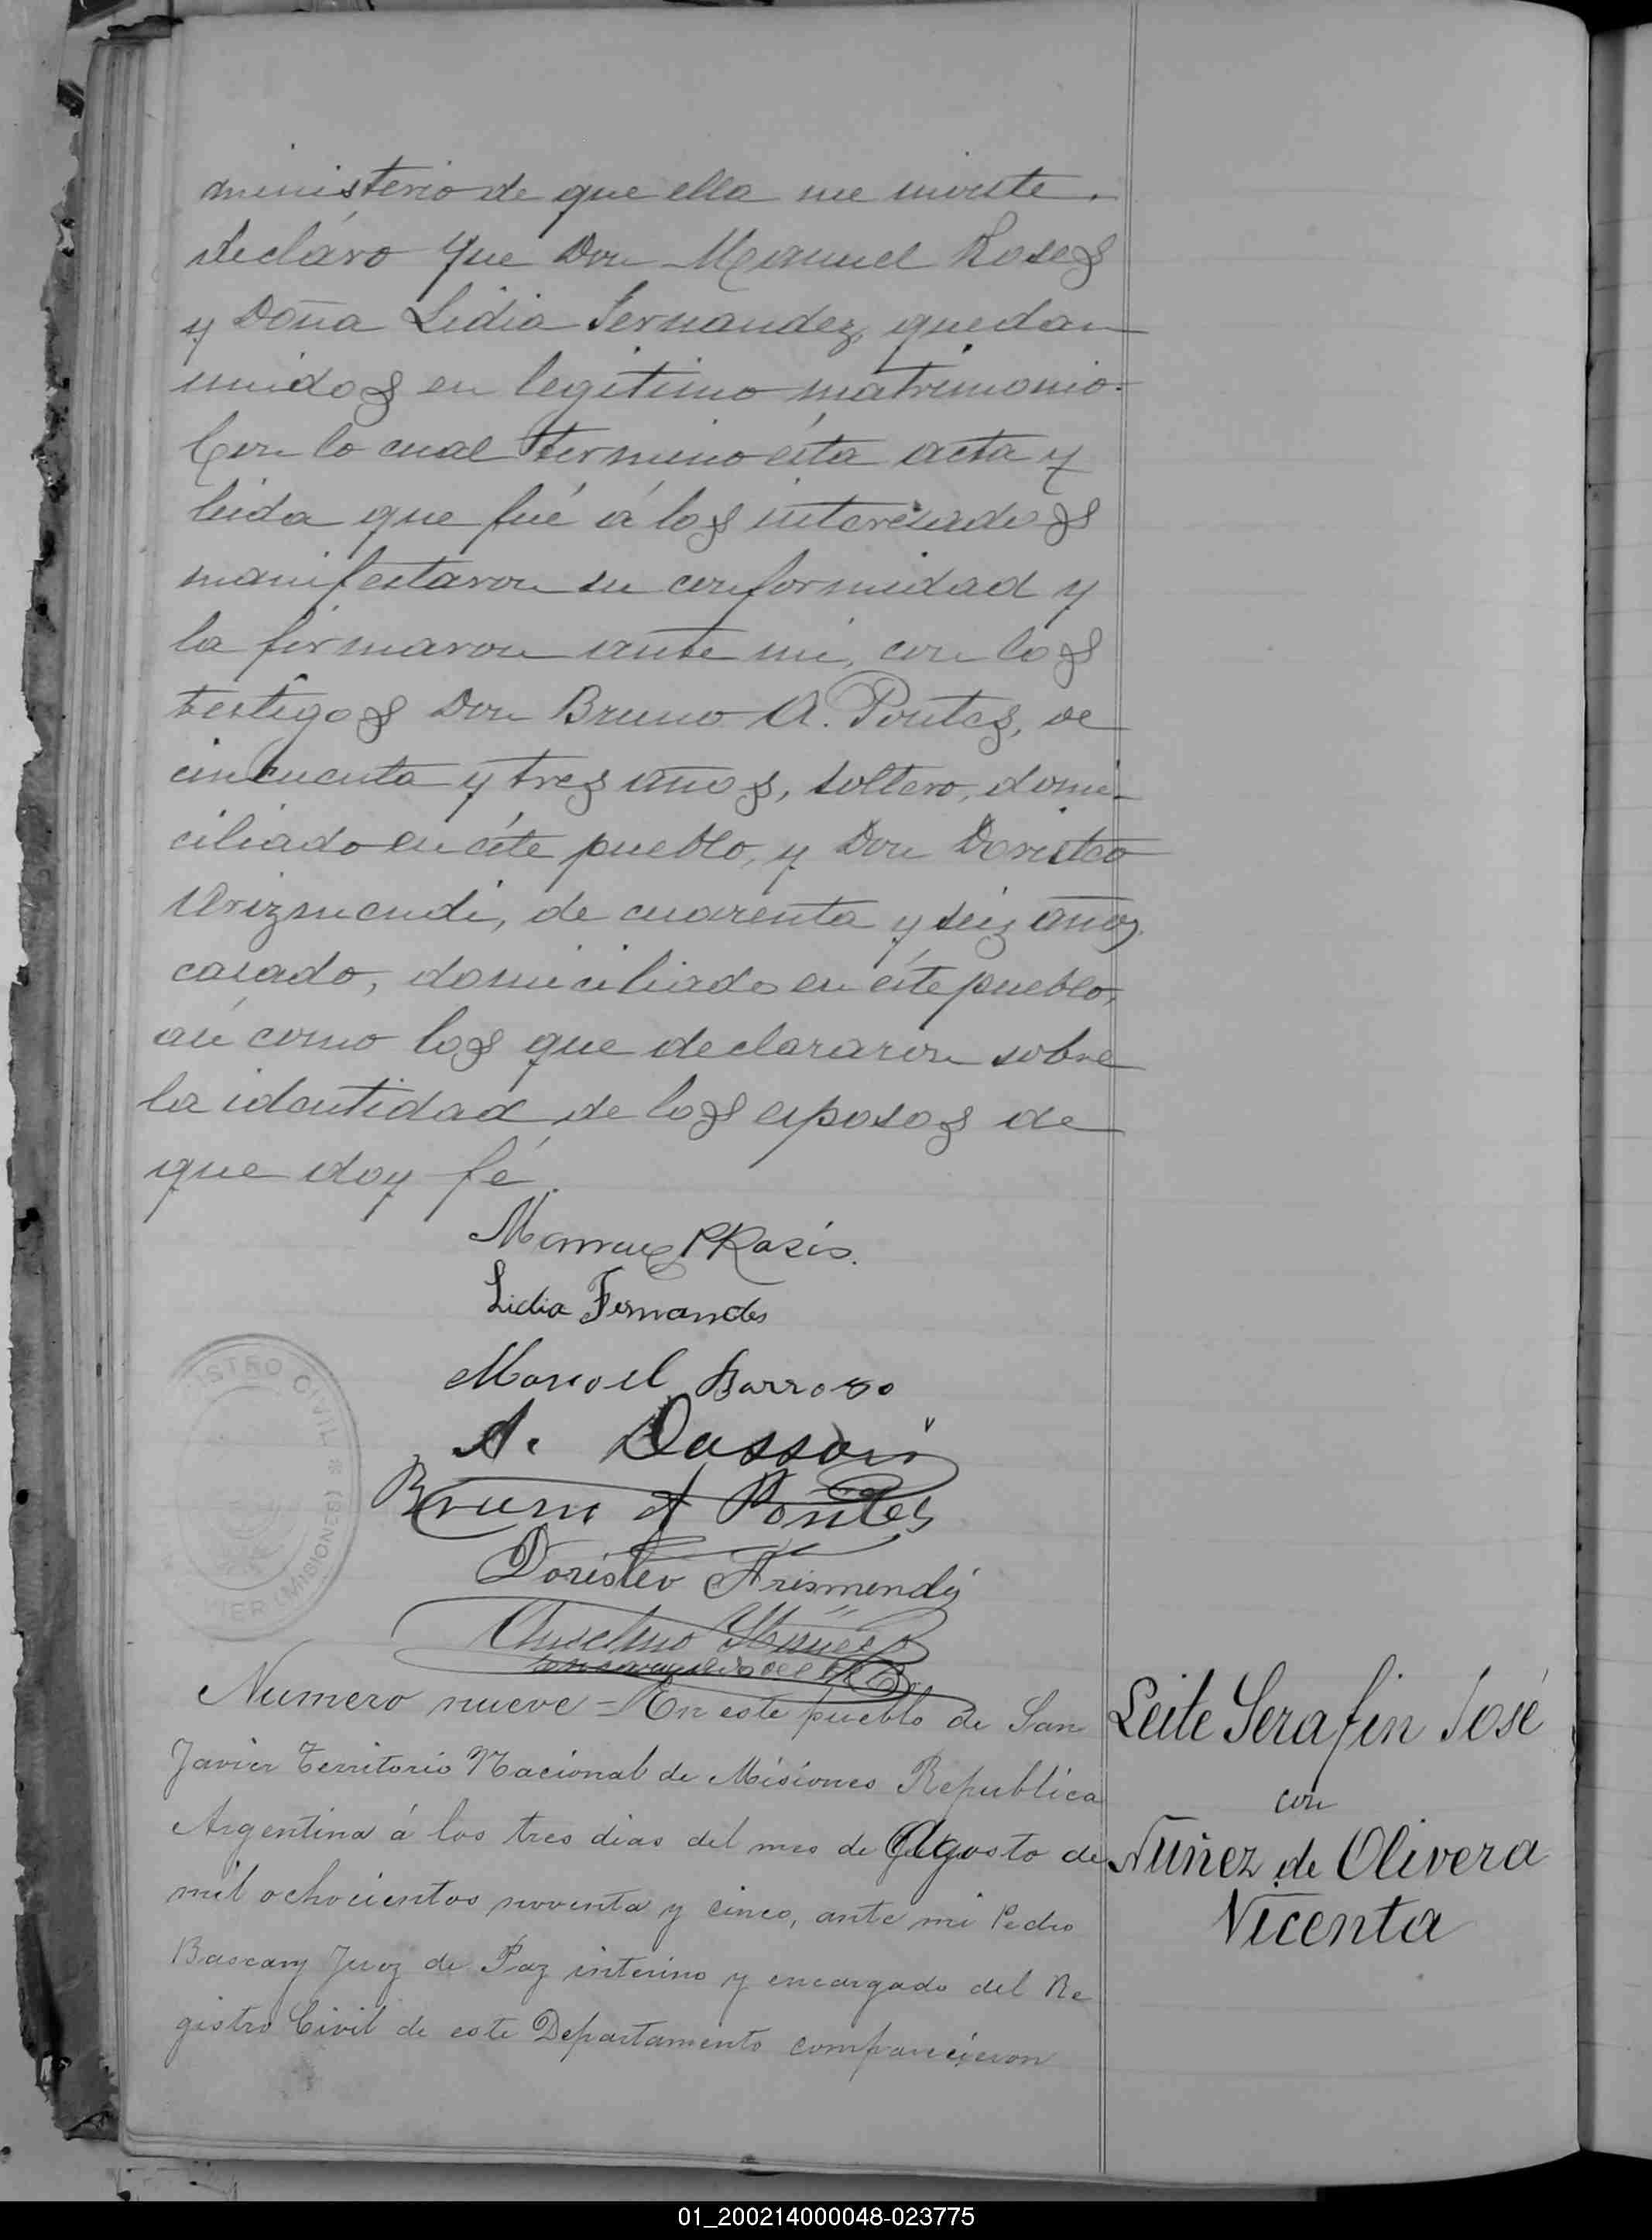 ministerio de que ella me inviste,
declaro que Don Manuel Roses
y Doña Lidia Fernandez, quedan
unidos en legitimo matrimonio.
Con lo cual termino ésta acta y
leida que fué á los interesados
manifestaron su conformidad y
la firmaron ante mi, con los
testigos Don Bruno A. Pontes, de
cincuenta y tres años, soltero, domi-
ciliado en éste pueblo, y Don Doristeo
Arizmendi, de cuarenta y seis años,
casado, domiciliado en éste pueblo,
asi como los que declararon sobre
la identidad de los esposos de
que doy fé.
Manuel
Lidia Fernandes
Manoel Barrozo
A. Dassori
Bruno A Pontes
Doristeo Arismendi
Anselmo
STRO CIVIL * (MISIONES) VIER
Numero nueve = En este pueblo de San
Javier Territorio Nacional de Misiones Republica
Argentina á los tres dias del mes de Agosto de
mil ochocientos noventa y cinco, ante mi Pedro
Bascary Juez de Paz interino y encargado del Re
gistro Civil de este Departamento comparecieron
Leite Serafin José
con
Nuñez de Olivera
Vicenta
01_200214000048-023775